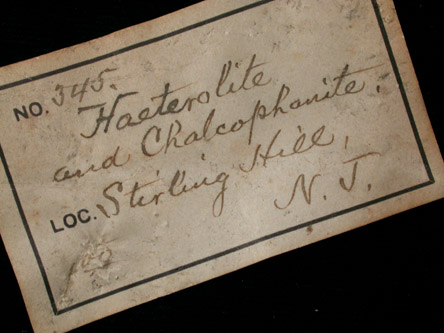 NO. 345.
Haeterolite
and Chalcophanite.
LOC. Stirling Hill,
N. J.